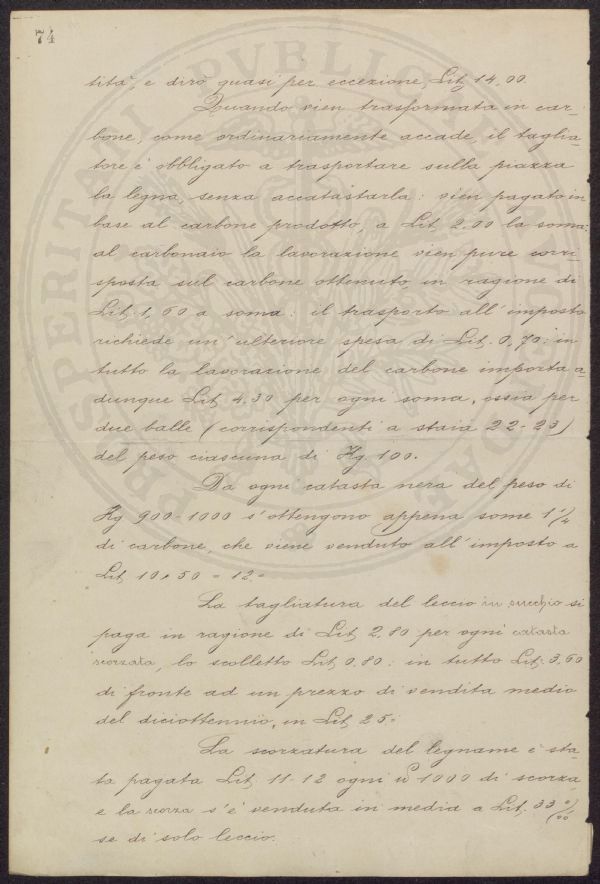 74
tità, e dirò quasi per eccezione, Lit. 14.00
Quando vien trasformata in car-
bone, come ordinariamente accade, il taglia-
tore è obbligato a trasportare sulla piazza
la legna, senza accatastarla: vien pagato in
base al carbone prodotto, a Lit. 2.00 la soma:
al carbonaio la lavorazione vien pure corri-
sposta sul carbone ottenuto in ragione di
Lit. 1,60 a soma: il trasporto all'imposto
richiede un'ulteriore spesa di Lit. 0,70; in
tutto la lavorazione del carbone importa a-
dunque Lit. 4.30 per ogni soma, ossia per
due balle (corrispondenti a staia 22-23)
del peso ciascuna di Kg 100.
Da ogni catasta nera del peso di
Kg 900-1000 s'ottengono appena some 1 1/4
di carbone, che viene venduto all'imposto a
Lit. 10,50 - 12.=
La tagliatura del leccio in succhio si
paga in ragione di Lit. 2.80 per ogni catasta
scorzata, lo scolletto Lit. 0.80: in tutto Lit. 3.60
di fronte ad un prezzo di vendita medio
del diciottennio, in Lit. 25=
La scorzatura del legname è sta-
ta pagata Lit. 11-12 ogni 1000 di scorza
e la scorza s'è venduta in media a Lit. 33 %00
se di solo leccio.
PROSPERITATI PVBLICAE AVGENDAE